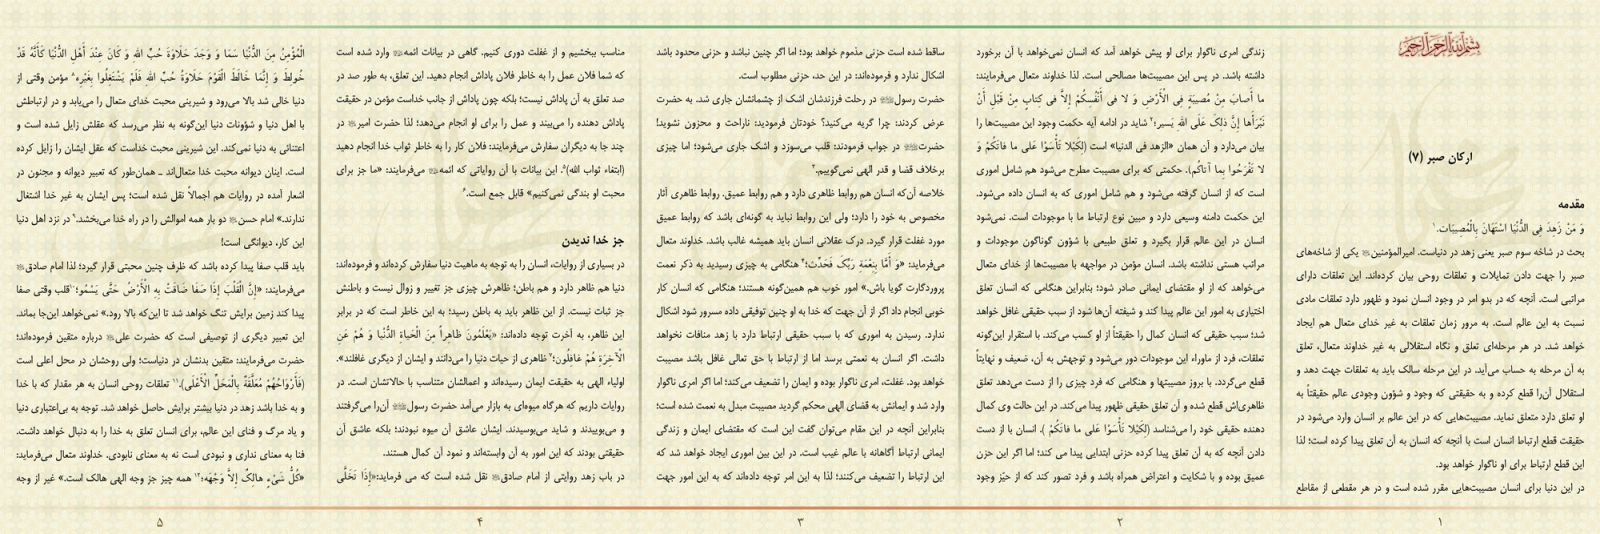 بسم الله الرحمن الرحیم
ارکان صبر (۷)
مقدمه
وَ مَنْ زَهِدَ فِی الدُّنْیَا اسْتَهَانَ بِالْمُصِیبَات.۱
بحث در شاخه سوم صبر یعنی زهد در دنیاست. امیرالمؤمنین یکی از شاخه‌های
صبر را جهت دادن تمایلات و تعلقات روحی بیان کرده‌اند. این تعلقات دارای
مراتبی است. آنچه که در بدو امر در وجود انسان نمود و ظهور دارد تعلقات مادی
نسبت به این عالم است. به مرور زمان تعلقات به غیر خدای متعال هم ایجاد
خواهد شد. در هر مرحله‌ای تعلق و نگاه استقلالی به غیر خداوند متعال، تعلق
به آن مرحله به حساب می‌آید. در این مرحله سالک باید به تعلقات جهت دهد و
استقلال آن‌را قطع کرده و به حقیقتی که وجود و شؤون وجودی عالم حقیقتاً به
او تعلق دارد متعلق نماید. مصیبت‌هایی که در این عالم بر انسان وارد می‌شود در
حقیقت قطع ارتباط انسان است با آنچه که انسان به آن تعلق پیدا کرده است؛ لذا
این قطع ارتباط برای او ناگوار خواهد بود.
در این دنیا برای انسان مصیبت‌هایی مقرر شده است و در هر مقطعی از مقاطع
۱
زندگی امری ناگوار برای او پیش خواهد آمد که انسان نمی‌خواهد با آن برخورد
داشته باشد. در پس این مصیبت‌ها مصالحی است. لذا خداوند متعال می‌فرمایند:
ما أَصابَ مِنْ مُصیبَةٍ فِی الْأَرْضِ وَ لا فی أَنْفُسِکُمْ إِلاَّ فی کِتابٍ مِنْ قَبْلِ أَنْ
نَبْرَأَها إِنَّ ذلِکَ عَلَی اللَّهِ یَسیر؛۲ شاید در ادامه آیه حکمت وجود این مصیبت‌ها را
بیان می‌دارد و آن همان «الزهد فی الدنیا» است (لِکَیْلا تَأْسَوْا عَلی‌ ما فاتَکُمْ وَ
لا تَفْرَحُوا بِما آتاکُم). حکمتی که برای مصیبت مطرح می‌شود هم شامل اموری
است که از انسان گرفته می‌شود و هم شامل اموری که به انسان داده می‌شود.
این حکمت دامنه وسیعی دارد و مبین نوع ارتباط ما با موجودات است. نمی‌شود
انسان در این عالم قرار بگیرد و تعلق طبیعی با شؤون گوناگون موجودات و
مراتب هستی نداشته باشد. انسان مؤمن در مواجهه با مصیبت‌ها از خدای متعال
می‌خواهد که از او مقتضای ایمانی صادر شود؛ بنابراین هنگامی که انسان تعلق
اختیاری به امور این عالم پیدا کند و شیفته آن‌ها شود از سبب حقیقی غافل خواهد
شد؛ سبب حقیقی که انسان کمال را حقیقتاً از او کسب می‌کند. با استقرار این‌گونه
تعلقات، فرد از ماوراء این موجودات دور می‌شود و توجهش به آن، ضعیف و نهایتاً
قطع می‌گردد. با بروز مصیبتها و هنگامی که فرد چیزی را از دست می‌دهد تعلق
ظاهری‌اش قطع شده و آن تعلق حقیقی ظهور پیدا می‌کند. در این حالت وی کمال
دهنده حقیقی خود را می‌شناسد (لِکَیْلا تَأْسَوْا عَلی‌ ما فاتَکُمْ ). انسان با از دست
دادن آنچه که به آن تعلق پیدا کرده حزنی ابتدایی پیدا می کند؛ اما اگر این حزن
عمیق بوده و با شکایت و اعتراض همراه باشد و فرد تصور کند که از حیّز وجود
۲
ساقط شده است حزنی مذموم خواهد بود؛ اما اگر چنین نباشد و حزنی محدود باشد
اشکال ندارد و فرموده‌اند: در این حد، حزنی مطلوب است.
حضرت رسول در رحلت فرزندشان اشک از چشمانشان جاری شد. به حضرت
عرض کردند: چرا گریه می‌کنید؟ خودتان فرمودید: ناراحت و محزون نشوید!
حضرت در جواب فرمودند: قلب می‌سوزد و اشک جاری می‌شود؛ اما چیزی
برخلاف قضا و قدر الهی نمی‌گوییم.۳
خلاصه آن‌که انسان هم روابط ظاهری دارد و هم روابط عمیق. روابط ظاهری آثار
مخصوص به خود را دارد؛ ولی این روابط نباید به گونه‌ای باشد که روابط عمیق
مورد غفلت قرار گیرد. درک عقلانی انسان باید همیشه غالب باشد. خداوند متعال
می‌فرماید: «وَ أَمَّا بِنِعْمَةِ رَبِّکَ فَحَدِّث؛۴ هنگامی به چیزی رسیدید به ذکر نعمت
پروردگارت گویا باش.» امور خوب هم همین‌گونه هستند؛ هنگامی که انسان کار
خوبی انجام داد اگر از آن جهت که خدا به او چنین توفیقی داده مسرور شود اشکال
ندارد. رسیدن به اموری که با سبب حقیقی ارتباط دارد با زهد منافات نخواهد
داشت. اگر انسان به نعمتی برسد اما از ارتباط با حق تعالی غافل باشد مصیبت
خواهد بود. غفلت، امری ناگوار بوده و ایمان را تضعیف می‌کند؛ اما اگر امری ناگوار
وارد شد و ایمانش به قضای الهی محکم گردید مصیبت مبدل به نعمت شده است؛
بنابراین آنچه در این مقام می‌توان گفت این است که مقتضای ایمان و زندگی
ایمانی ارتباط آگاهانه با عالم غیب است. در این بین اموری ایجاد خواهد شد که
این ارتباط را تضعیف می‌کنند؛ لذا به این امر توجه داده‌اند که به این امور جهت
۳
مناسب ببخشیم و از غفلت دوری کنیم. گاهی در بیانات ائمه وارد شده است
که شما فلان عمل را به خاطر فلان پاداش انجام دهید. این تعلق، به طور صد در
صد تعلق به آن پاداش نیست؛ بلکه چون پاداش از جانب خداست مؤمن در حقیقت
پاداش دهنده را می‌بیند و عمل را برای او انجام می‌دهد؛ لذا حضرت امیر در
چند جا به دیگران سفارش می‌فرمایند: فلان کار را به خاطر ثواب خدا انجام دهید
(ابتغاء ثواب الله)۵. این بیانات با آن روایاتی که ائمه می‌فرمایند: «ما جز برای
محبت او بندگی نمی‌کنیم» قابل جمع است.۶
جز خدا ندیدن
در بسیاری از روایات، انسان را به توجه به ماهیت دنیا سفارش کرده‌اند و فرموده‌اند:
دنیا هم ظاهر دارد و هم باطن؛ ظاهرش چیزی جز تغییر و زوال نیست و باطنش
جز ثبات نیست. از این ظاهر باید به باطن رسید؛ به این خاطر است که در برابر
این ظاهر، به آخرت توجه داده‌اند: «یَعْلَمُونَ ظاهِراً مِنَ الْحَیاةِ الدُّنْیا وَ هُمْ عَنِ
الْآخِرَةِ هُمْ غافِلُون؛۷ ظاهری از حیات دنیا را می‌دانند و ایشان از دیگری غافلند».
اولیاء الهی به حقیقت ایمان رسیده‌اند و اعمالشان متناسب با حالاتشان است. در
روایات داریم که هرگاه میوه‌ای به بازار می‌آمد حضرت رسول آن‌را می‌گرفتند
و می‌بوییدند و شاید می‌بوسیدند. ایشان عاشق آن میوه نبودند؛ بلکه عاشق آن
حقیقتی بودند که این امور به آن وابسته‌اند و نمود آن کمال هستند.
در باب زهد روایتی از امام صادق نقل شده است که می فرماید:«إِذَا تَخَلَّی
۴
الْمُؤْمِنُ مِنَ الدُّنْیَا سَمَا وَ وَجَدَ حَلَاوَةَ حُبِّ اللَّهِ وَ کَانَ عِنْدَ أَهْلِ الدُّنْیَا کَأَنَّهُ قَدْ
خُولِطَ وَ إِنَّمَا خَالَطَ الْقَوْمَ حَلَاوَةُ حُبِّ اللَّهِ فَلَمْ یَشْتَغِلُوا بِغَیْرِه؛۸ مؤمن وقتی از
دنیا خالی شد بالا می‌رود و شیرینی محبت خدای متعال را می‌یابد و در ارتباطش
با اهل دنیا و شؤونات دنیا این‌گونه به نظر می‌رسد که عقلش زایل شده است و
اعتنائی به دنیا نمی‌کند. این شیرینی محبت خداست که عقل ایشان را زایل کرده
است. اینان دیوانه محبت خدا متعال‌اند ــ همان‌طور که تعبیر دیوانه و مجنون در
اشعار آمده در روایات هم اجمالاً نقل شده است؛ پس ایشان به غیر خدا اشتغال
ندارند.» امام حسن دو بار همه اموالش را در راه خدا می‌بخشد.۹ در نزد اهل دنیا
این کار، دیوانگی است!
باید قلب صفا پیدا کرده باشد که ظرف چنین محبتی قرار گیرد؛ لذا امام صادق
می‌فرمایند: «إِنَّ الْقَلْبَ إِذَا صَفَا ضَاقَتْ بِهِ الْأَرْضُ حَتَّی یَسْمُو؛۱۰قلب وقتی صفا
پیدا کند زمین برایش تنگ خواهد شد تا این‌که بالا رود.» نمی‌خواهد این‌جا بماند.
این تعبیر دیگری از توصیفی است که حضرت علی درباره متقین فرموده‌اند؛
حضرت می‌فرمایند: متقین بدنشان در دنیاست؛ ولی روحشان در محل اعلی است
(فَأَرْوَاحُهُمْ مُعَلَّقَةٌ بِالْمَحَلِّ الْأَعْلَی).۱۱ تعلقات روحی انسان به هر مقدار که با خدا
و به خدا باشد زهد در دنیا بیشتر برایش حاصل خواهد شد. توجه به بی‌اعتباری دنیا
و یاد مرگ و فنای این عالم، برای انسان تعلق به خدا را به دنبال خواهد داشت.
فنا به معنای نداری و نبودی است نه به معنای نابودی. خداوند متعال می‌فرماید:
«کُلُّ شَیْءٍ هالِکٌ إِلاَّ وَجْهَه؛۱۲ همه چیز جز وجه الهی هالک است.» غیر از وجه
۵